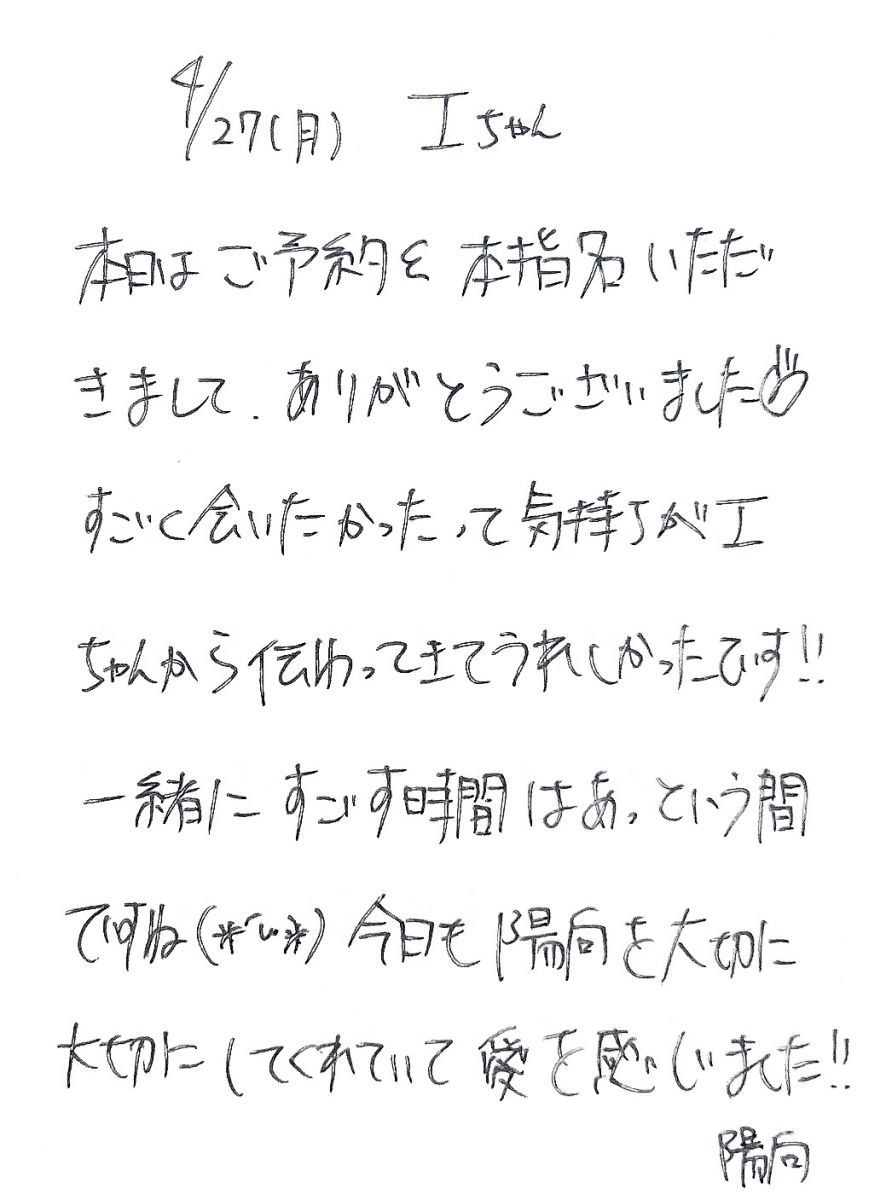 4/27(月) Iちゃん
本日はご予約を本指名いただ
きまして、ありがとうございました
すごく会いたかったって気持ちがI
ちゃんから伝わってきてうれしかったです!!
一緒にすごす時間はあっという間
ですね(*´ω`*)今日も陽向を大切に
大切にしてくれていて愛を感じました!!
陽向